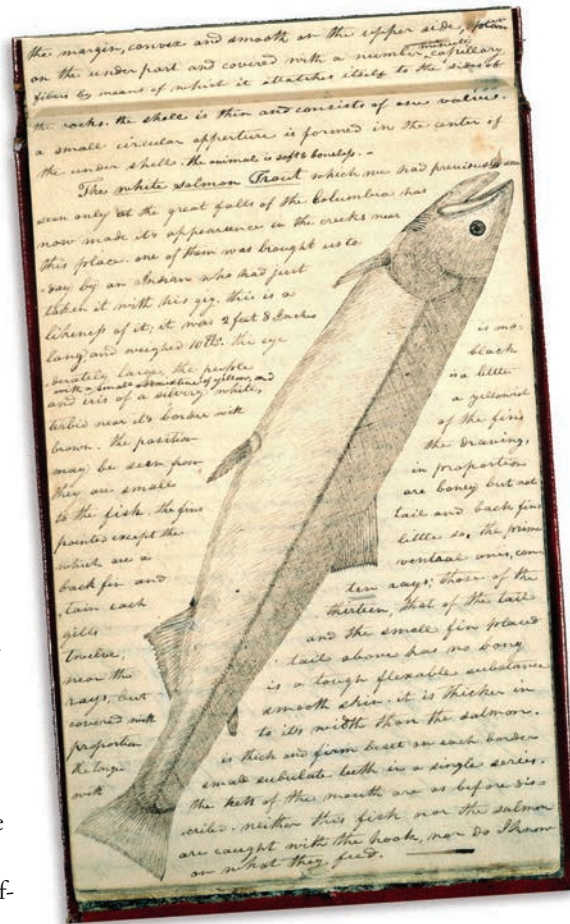 the margin, convex and smooth on the upper side, plain
on the under part and covered with a number minute capillary
fibers by means of which it attatches itself to the sides of
the rocks. the shell is thin and consists of one valve.
a small circular apperture is formed in the center of
the under shell. the animal is soft & boneless. —
The white salmon Trout which we had previously
seen only at the great falls of the Columbia has
now made it's appearance in the creeks near
this place. one of them was brought us to
day by an Indian who had just
taken it with his gig. this is a
likeness of it; it was 2 feet 8 Inches
long and weighed 10 lbs. the eye is mo-
derately large, the puple black
with a small admixture of yellow, and
and iris of a silvery white, is a little
terbid near it's border with a yellowish
brown. the position of the fins
may be seen from the drawing,
they are small in proportion
to the fish. the fins are boney but not
pointed except the tail and back fins
which are a little so, the prime
back fin and ventral ones, con
tain each ten rays; those of the
gills thirteen, that of the tail
twelve, and the small fin placed
near the tail above has no bony
rays, but is a tough flexable substance
covered with smooth skin. it is thicker in
proportion to it's width than the salmon.
the tongue is thick and firm beset on each border
with small subulate teeth in a single series.
the teeth of the mouth are as before dis
cribed. neither this fish nor the salmon
are caught with the hook, nor do I know
on what they feed.
e
f-